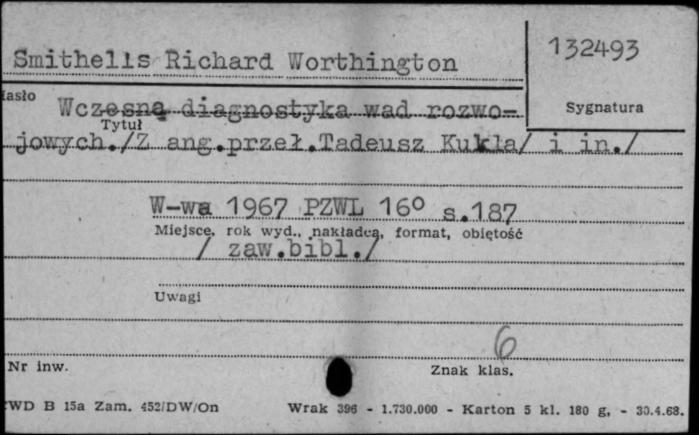 Smithells Richard Worthington
132493
Hasło
Sygnatura
Wczesną diagnostyka wad rozwo-
Tytuł
jowych./Z ang.przeł.Tadeusz Kukla/ i in./
W-wa 1967 PZWL 16° s.187
Miejsce, rok wyd., nakładca, format, objętość
/ zaw.bibl./
Uwagi
6
Nr inw.
Znak klas.
CWD B 15a Zam. 452/DW/On Wrak 396 - 1.730.000 - Karton 5 kl. 180 g, - 30.4.68.